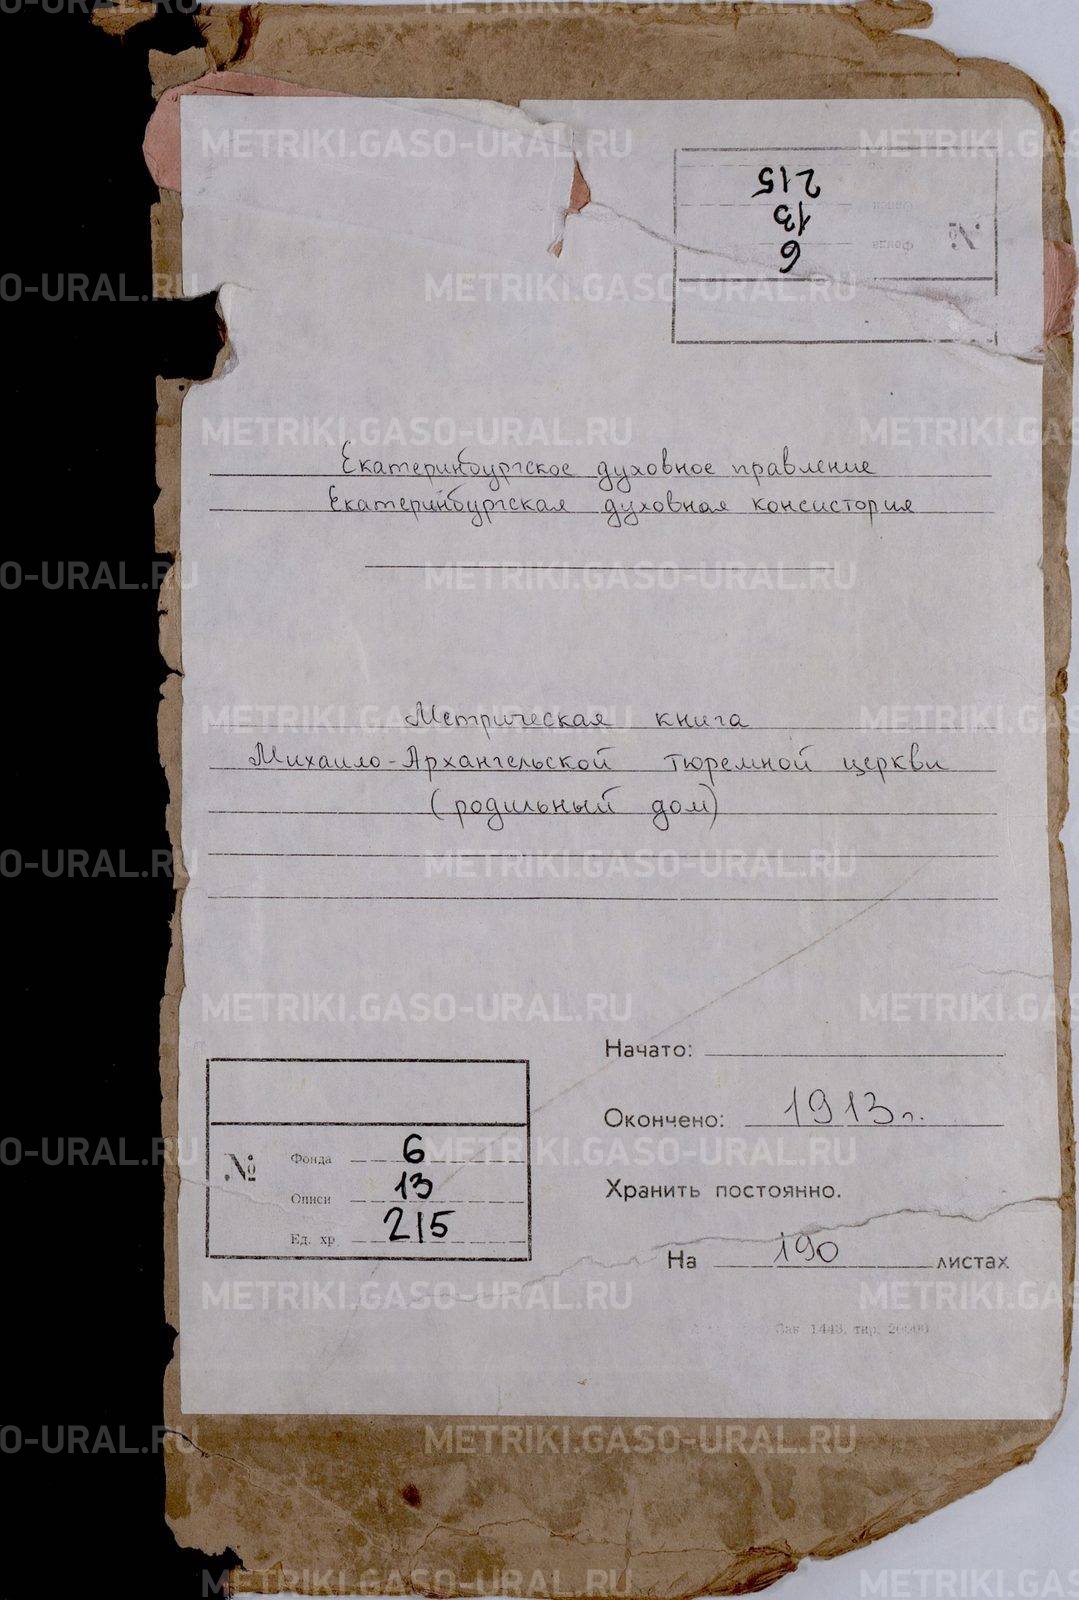 215
13
6
Фонда
№
Екатеринбургское духовное правление
Екатеринбургская духовная консистория
Метрическая книга
Михаило-Архангельской тюремной церкви
(родильный дом)
Начато:
Окончено: 1913 г.
Хранить постоянно.
На 190 листах
№
Фонда 6
Описи 13
Ед. хр. 215
Зак. 1443, тир.
METRIKI.GASO-URAL.RU